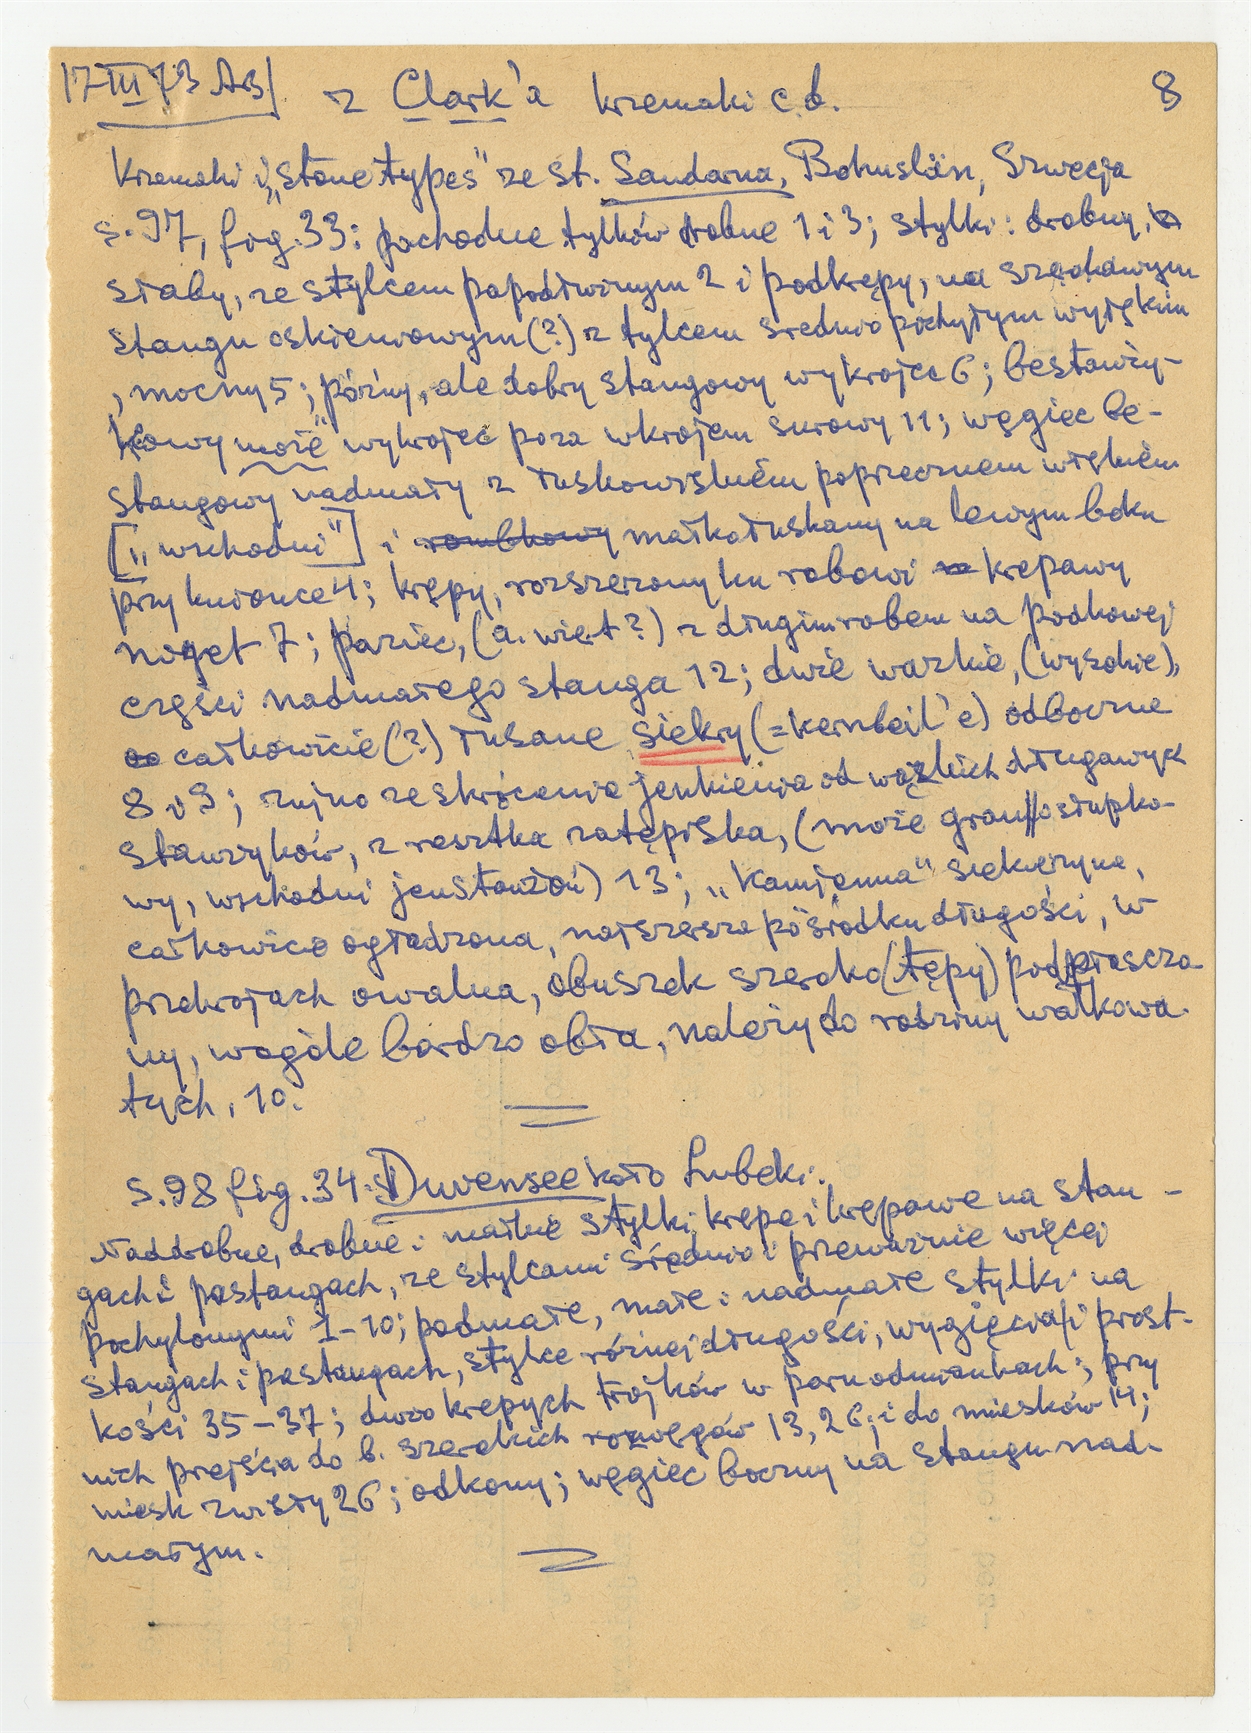 17 III 73 AB
z Clark'a krzemaki c.d. 8
Krzemaki i „stone types" ze st. Sandarna, Bohuslän, Szwecja
s. 97, fig. 33: pochodne tylków drobne 1 i 3; stylki: drobny,
słaby, ze stylcem popodłwinym 2 i podkrępy, na szerokawym
stangu oskieniowym (?) z tylcem średnio pochyłym wyjętkim
, mocny 5; późny, ale dobry stangowy wykrojec 6; bestawży-
kowy „może" wykrojec poza wkrojem surowy 11; węgiec be-
stangowy nadmały z łuskowiskiem poprzecznem wielkiém
[„wschodni"] i małkołuskany na lewym boku
przy kuronce 4; krępy, rozszerzony ku rabowi krępawy
noget 7; paziec, (a. wiet?) z długim rabem na podkowej
części nadmałego stanga 12; dwie wazkie, (wysokie),
całkowicie (?) łusane siekry (= kernbeil'e) odboczne
8 i 9; zujno ze skrócenia jenkienia od wązkich długawych
stawzyków, z resztka zatępiska, (może gran/osłupko-
wy, wschodni jenstawżoń) 13; „kamienna" siekierzyna,
całkowicie ogładzona, najszersza pośrodku długości, w
przekrojach owalna, obuszek szeroko (tępy) podpłaszcza-
ny, wogóle bardzo obła, należy do rodziny wałkowa-
tych, 10.
s. 98 fig. 34. Duvensee koło Lubeki:
Naddrobne, drobne i małkie stylki krępe i krępawe na stan-
gach i pastangach, ze stylcami średnio i przeważnie więcej
pochylonymi 1-10; podmałe, małe i nadmałe stylki na
stangach i pastangach, stylce różnej długości, wygięcia/i prost-
kości 35-37; dużo krępych trójków w paru odmiankach; przy
nich przejścia do b. szerokich rozwęgów 13, 26; i do miesków 14;
miesk zwisły 26; odkony; węgiec boczny na stangu nad-
małym.